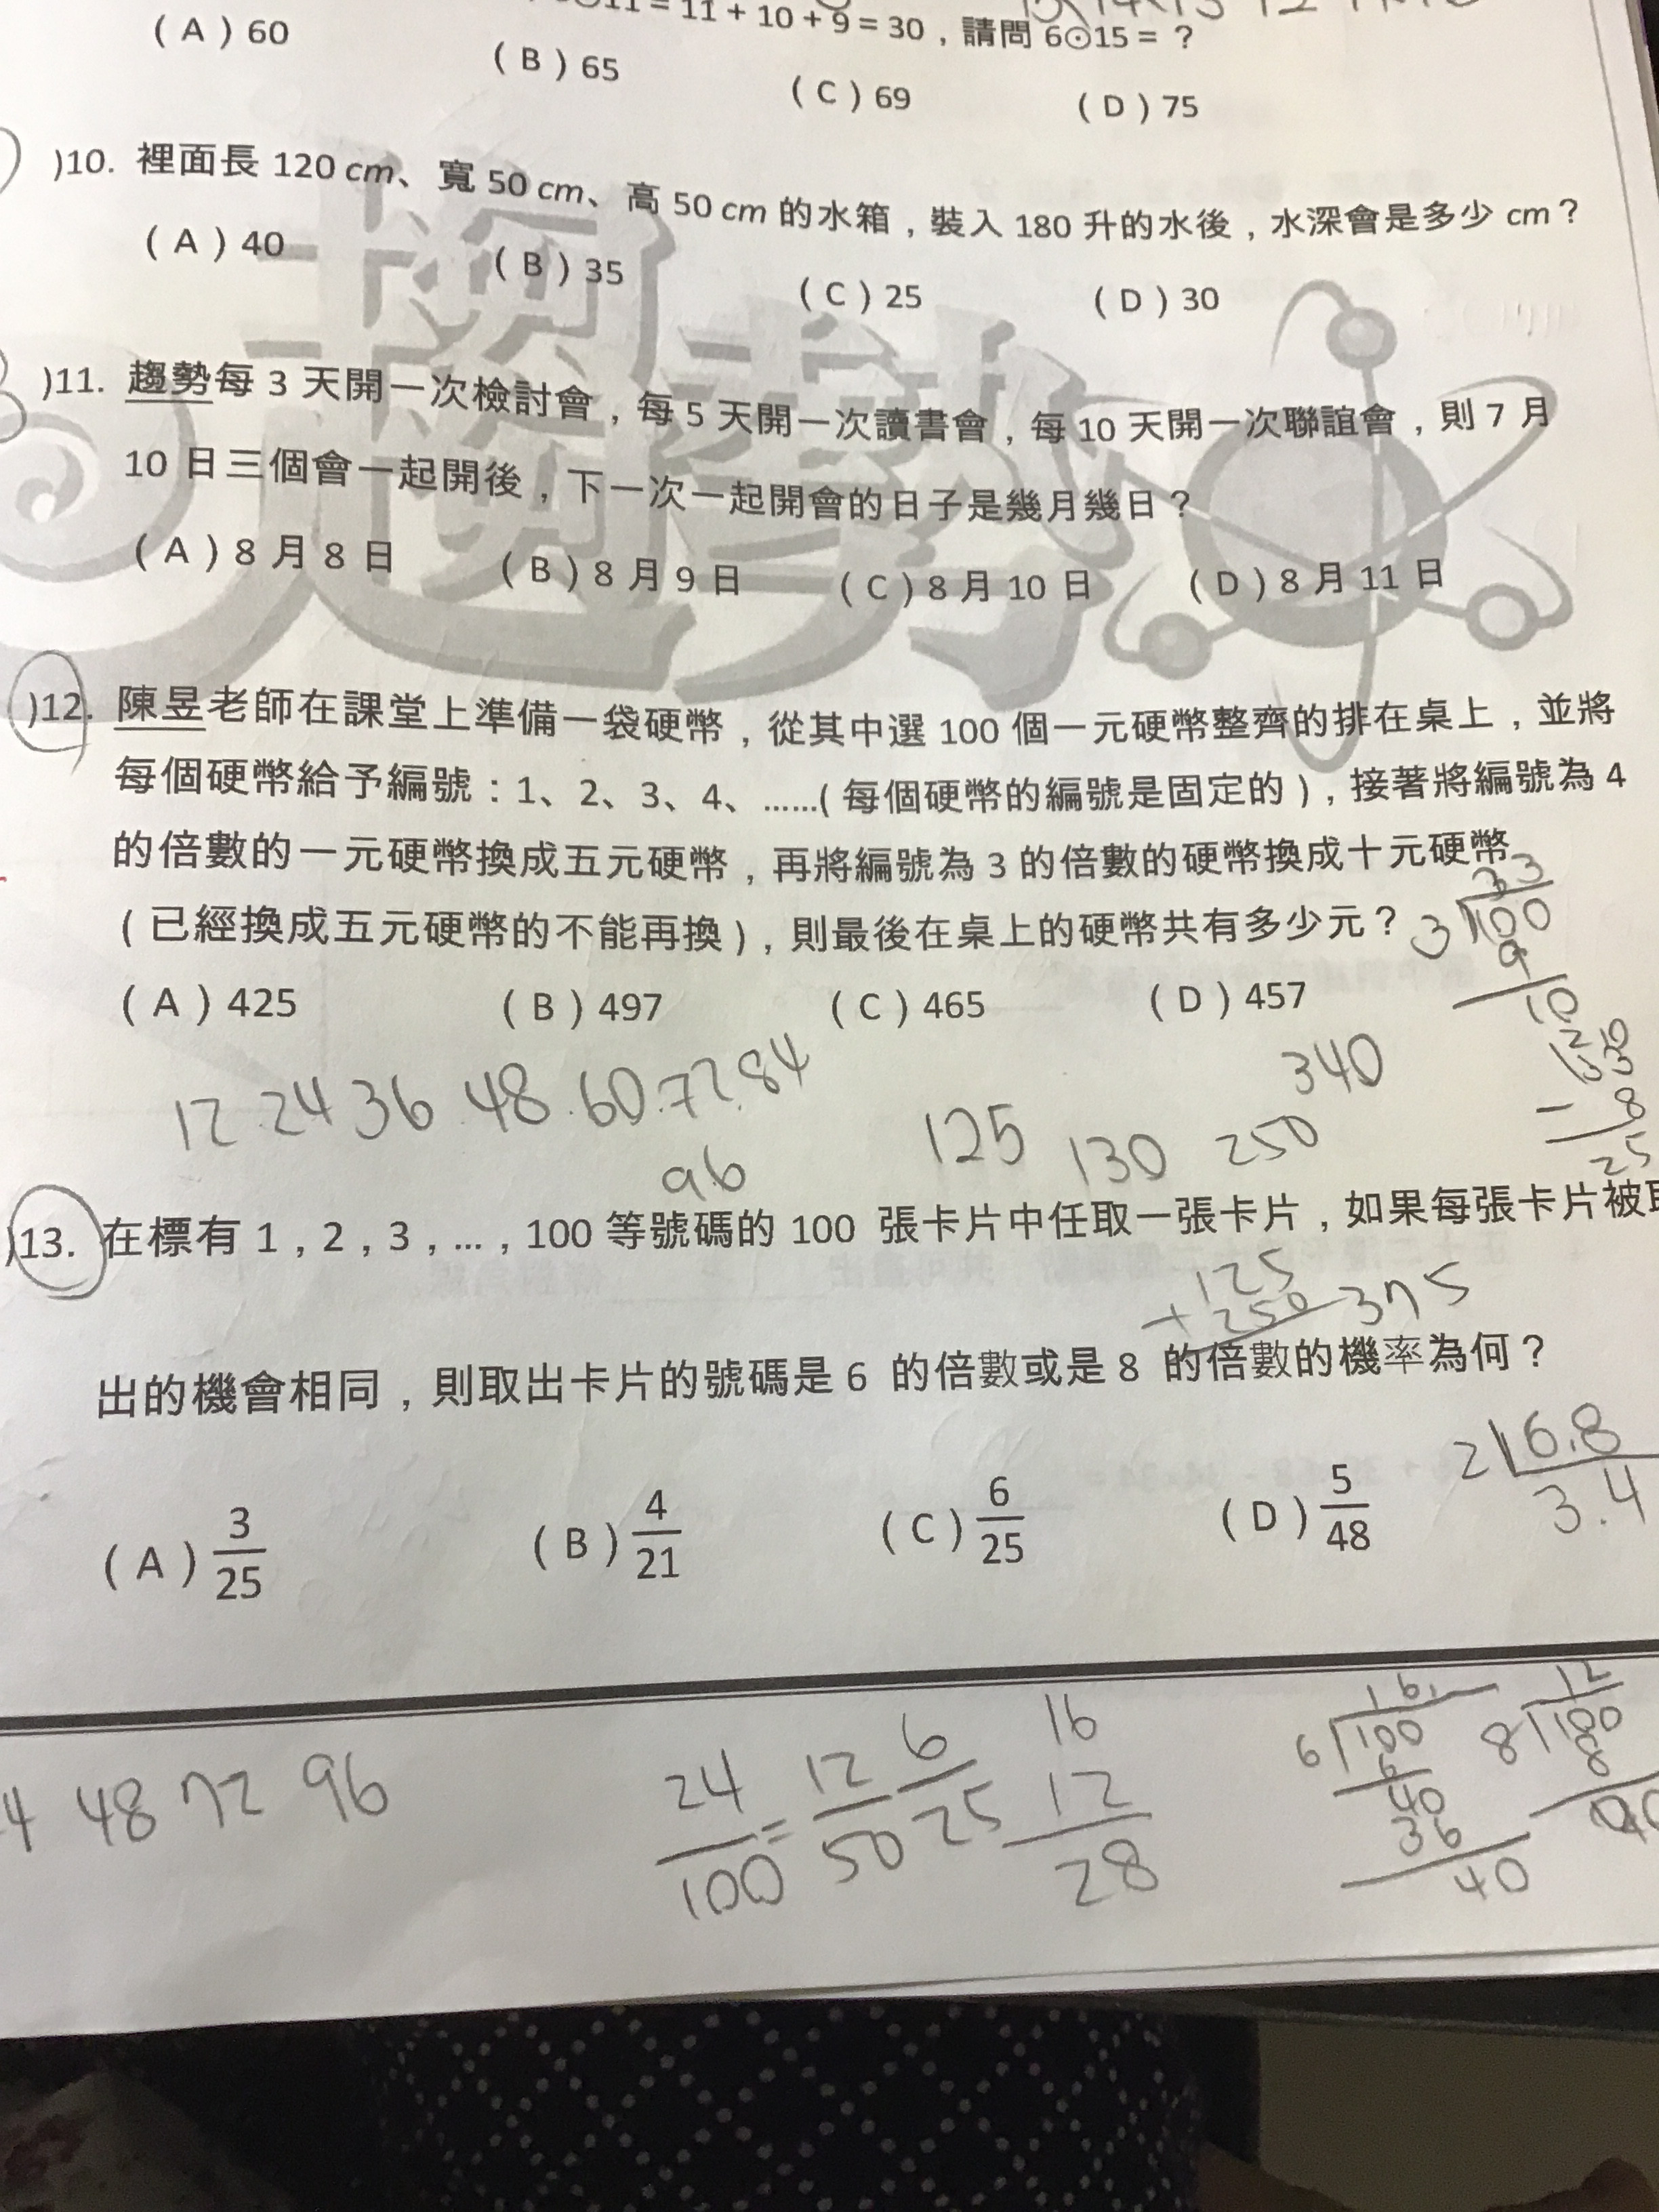 11 = 11 + 10 + 9 = 30，請問 6⊙15 = ？
(A) 60 (B) 65 (C) 69 (D) 75
)10. 裡面長 120 cm、寬 50 cm、高 50 cm 的水箱，裝入 180 升的水後，水深會是多少 cm？
(A) 40 (B) 35 (C) 25 (D) 30
)11. 趨勢每 3 天開一次檢討會，每 5 天開一次讀書會，每 10 天開一次聯誼會，則 7 月
10 日三個會一起開後，下一次一起開會的日子是幾月幾日？
(A) 8 月 8 日 (B) 8 月 9 日 (C) 8 月 10 日 (D) 8 月 11 日
趨勢
)12. 陳昱老師在課堂上準備一袋硬幣，從其中選 100 個一元硬幣整齊的排在桌上，並將
每個硬幣給予編號：1、2、3、4、......( 每個硬幣的編號是固定的 )，接著將編號為 4
的倍數的一元硬幣換成五元硬幣，再將編號為 3 的倍數的硬幣換成十元硬幣
( 已經換成五元硬幣的不能再換 )，則最後在桌上的硬幣共有多少元？
(A) 425 (B) 497 (C) 465 (D) 457
33
3 100
9
10
8
25
340
12 . 24 36 . 48 . 60 . 72 . 84
96
125 130 250
)13. 在標有 1 , 2 , 3 , ... , 100 等號碼的 100 張卡片中任取一張卡片，如果每張卡片被取
125
+ 250 375
出的機會相同，則取出卡片的號碼是 6 的倍數或是 8 的倍數的機率為何？
2 6.8
3.4
(A) 3/25 (B) 4/21 (C) 6/25 (D) 5/48
4 48 72 96
24/100 = 12/50 6/25
16
12
28
16
6 100
6
40
36
40
12
8 100
8